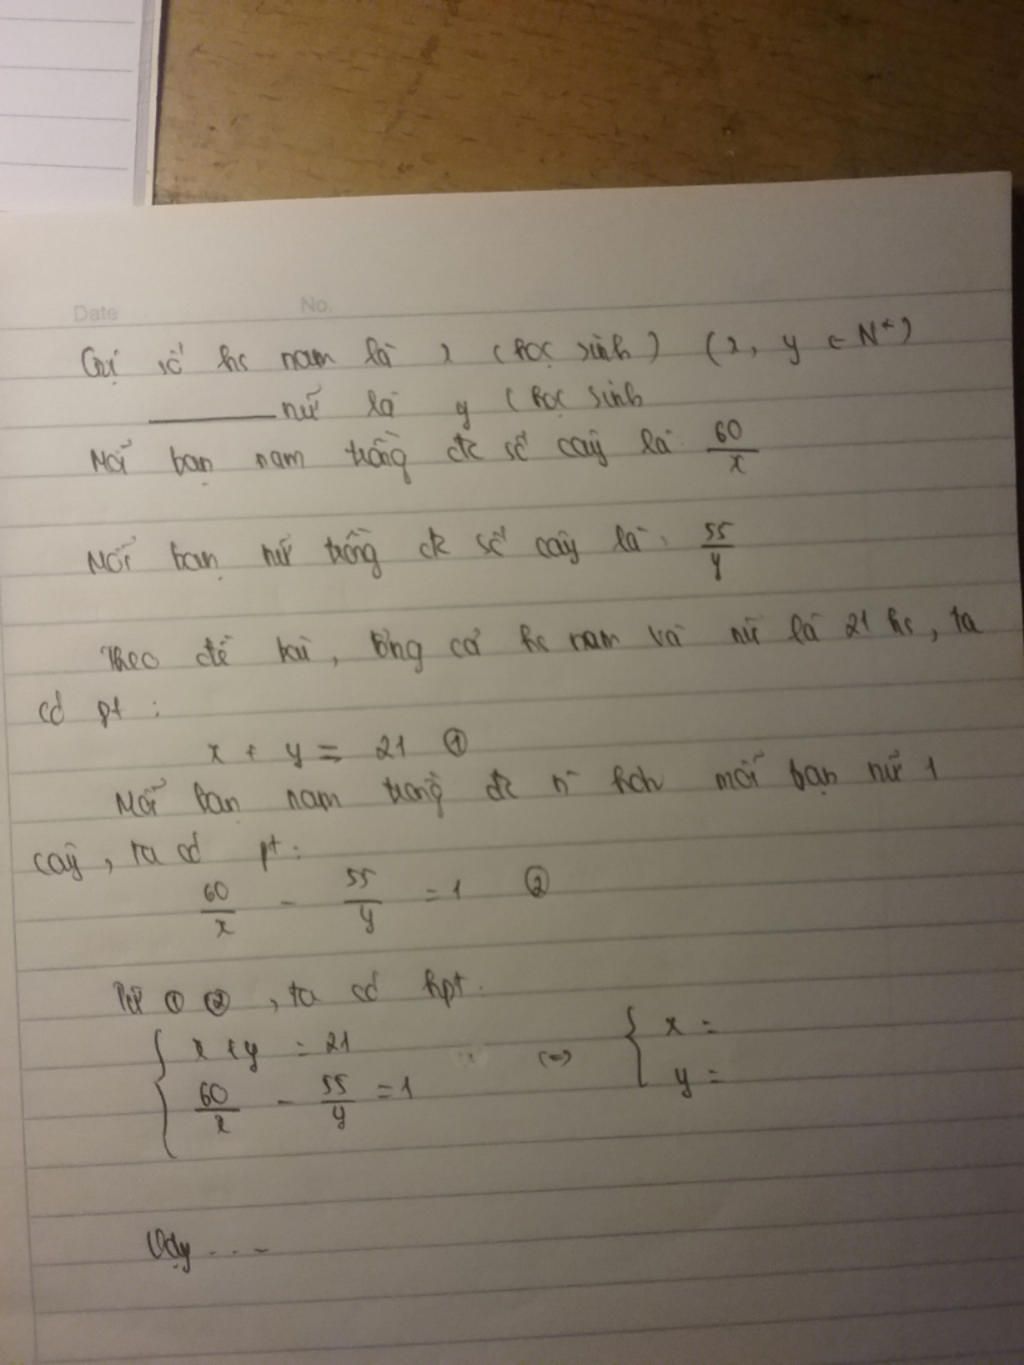 Date No.
Gọi số hs nam là x (học sinh) (x, y ∈ N*)
nữ là y (học sinh
Mỗi bạn nam trồng đc số cây là: 60/x
Mỗi bạn nữ trồng đc số cây là: 55/y
Theo đề bài, tổng cả hs nam và nữ là 21 hs, ta
có pt :
x + y = 21 ①
Mỗi bạn nam trồng đc n hơn mỗi bạn nữ 1
cây, ta có pt:
60/x - 55/y = 1 ②
Từ ① ②, ta có hpt:
{ x + y = 21 (=) { x =
60/x - 55/y = 1 y =
Vậy ...